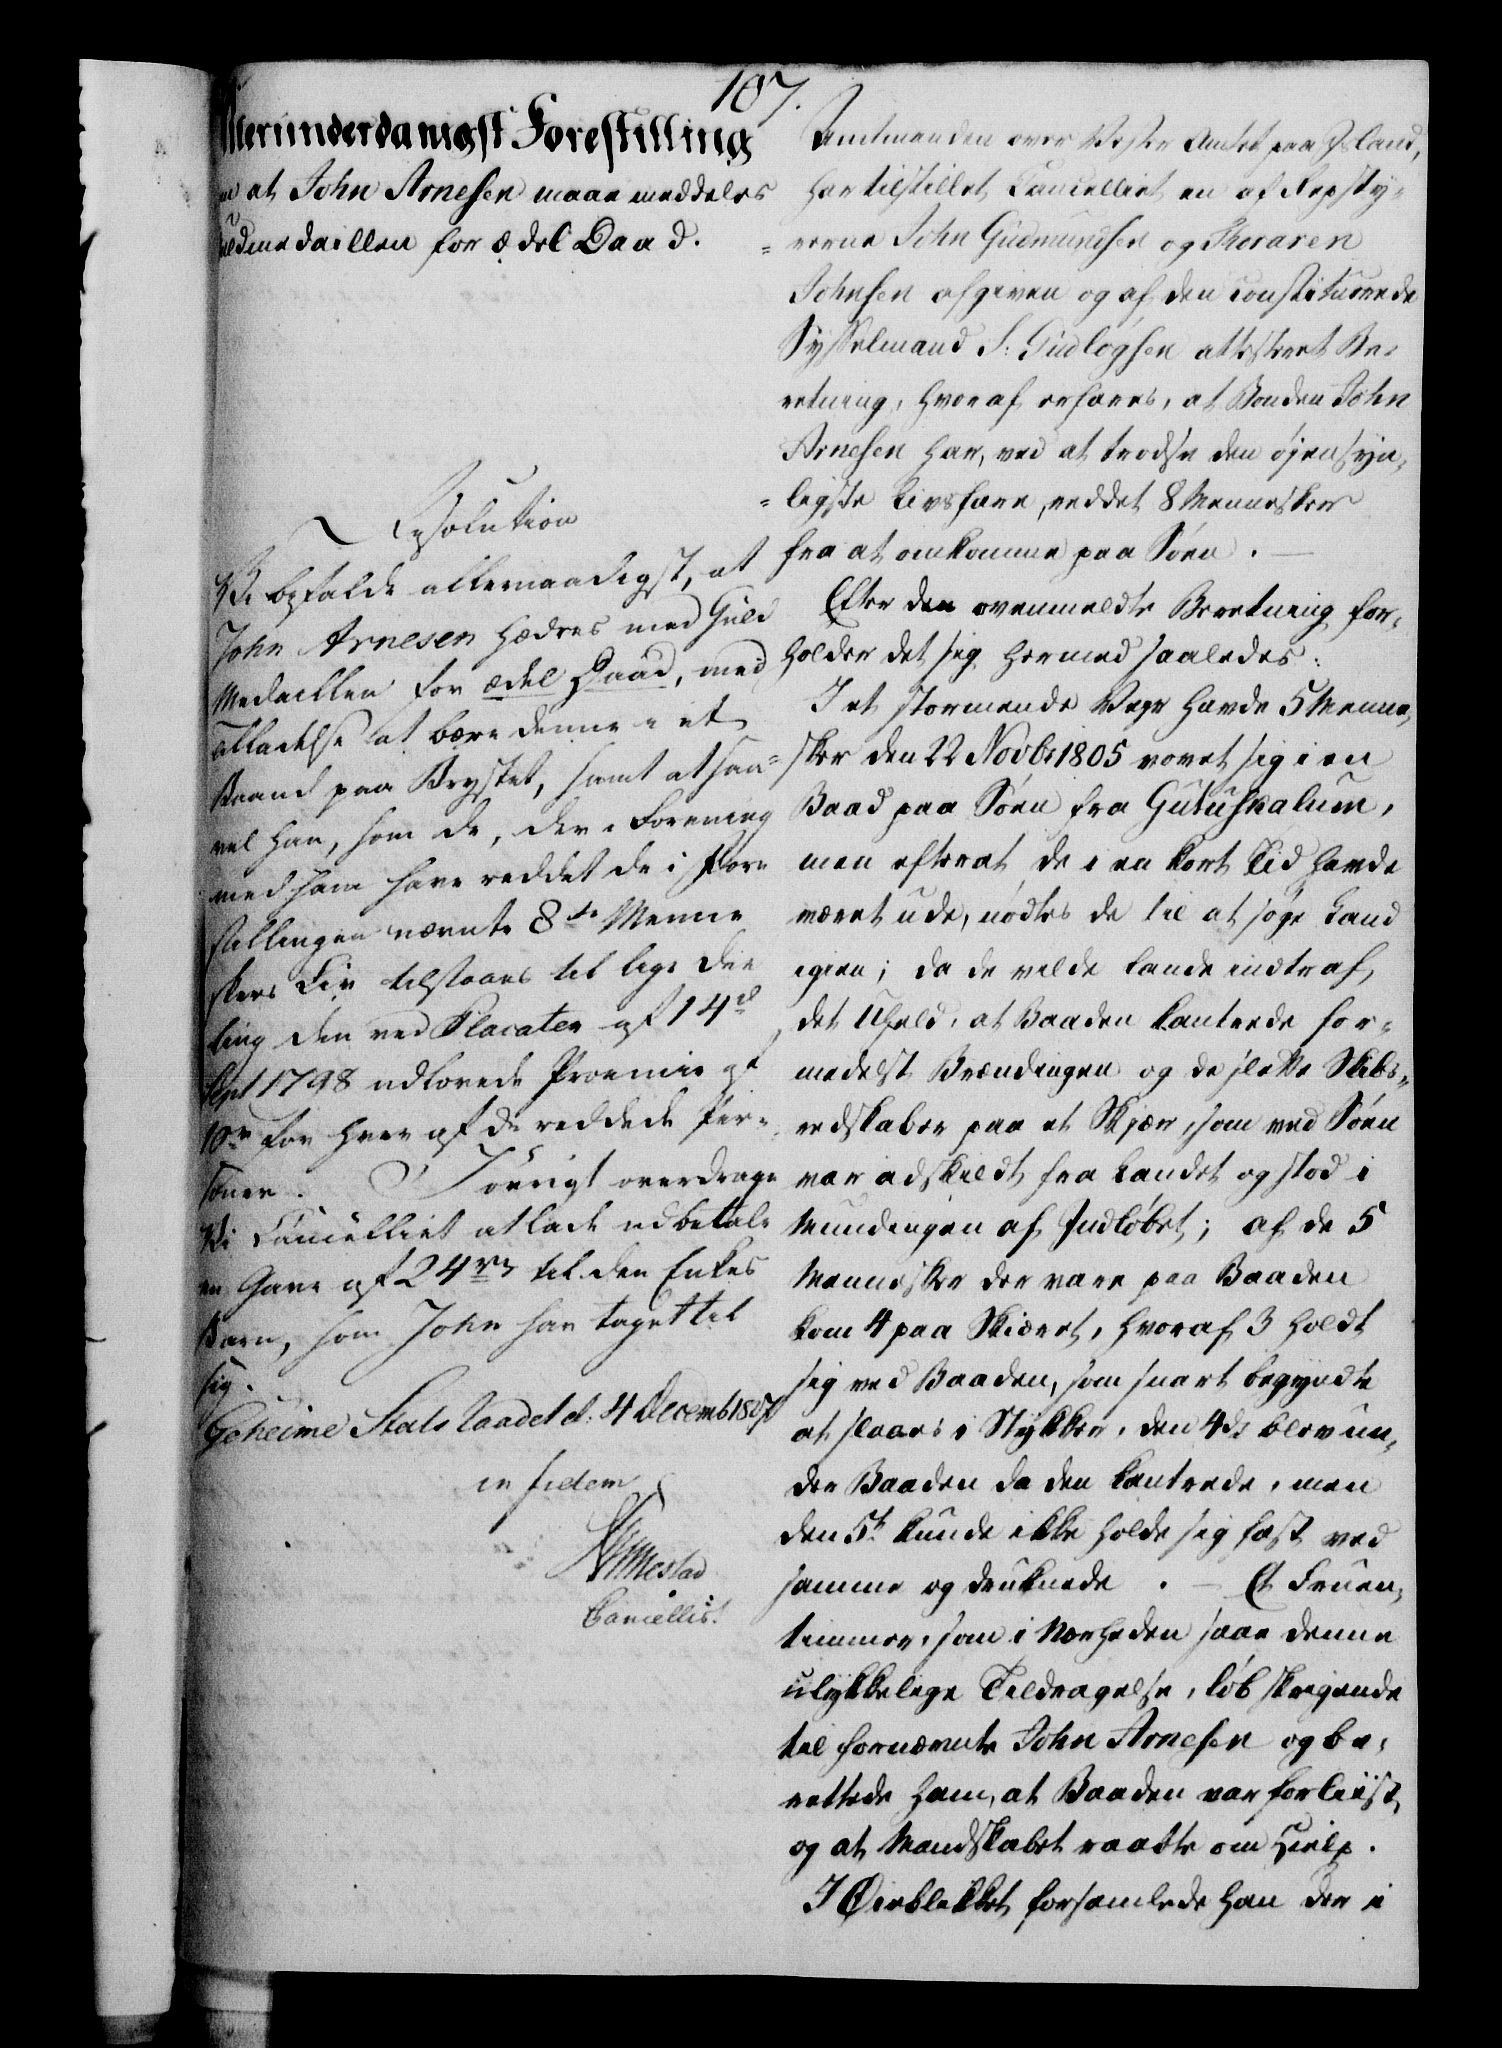 107.
Allerunderdanigst Forestilling
at John Arnesen maae meddeles
Guldmedaillen for ædel Daad.
Resolution
Vi befalde allernaadigst, at
John Arnesen hædres med Guld
Medaillen for ædel Daad, med
Tilladelse at bære denne i et
Baand paa Brystet, samt at saa-
vel han, som de, der i Forening
med ham have reddet de i Fore
stillingen nævnte 8te Menne
skers Liv tilstaaes til lige Dee
ling den ved Placaten af 14de
Sept 1798 udlovede Præmie af
10rd for hver af de reddede Per-
soner. I øvrigt overdrage
Vi Cancelliet at lade udbetale
en Gave af 24rd til den Enkes
Barn, som John har taget til
sig.
Geheime Stats Raadet d: 4 Decemb 1807
in fidem
Cancellist
Amtmanden over Vester Amtet paa Island,
har tilstillet Cancelliet en af Repsty-
rerne John Gudmundsen og Thoraren
Johnsen afgiven og af den constituerede
Sysselmand S: Gudlögsen attesteret Be-
retning, hvoraf erfares, at Bonden John
Arnesen har, ved at trodse den øjensyn-
ligste Livsfare, reddet 8 Mennesker
fra at omkomme paa Søen. —
Efter den ovenmeldte Beretning for-
holder det sig hermed saaledes:
I et stormende Veyr havde 5 Menne-
sker den 22 Novbr 1805 vovet sig i en
Baad paa Søen fra Gufuskalum,
men efterat de i en kort Tid havde
været ude, nødtes de til at søge Land
igien; da de vilde lande indtraf
det Uheld, at Baaden kantrede for-
medelst Brændingen og de slette Skibs-
redskaber paa et Skjær, som ved Søen
var adskildt fra Landet og stod i
Mundingen af Indløbet; af de 5
Mennesker der vare paa Baaden
kom 4 paa Skiæret, hvoraf 3 holdt
sig ved Baaden, som snart begyndte
at slaaes i Stykker, den 4de blev un-
der Baaden da den kantrede, men
den 5te kunde ikke holde sig fast ved
samme og druknede. — Et Fruen-
timmer, som i Nærheden saae denne
ulykkelige Tildragelse, løb skrigende
til fornævnte John Arnesen og be-
rettede ham, at Baaden var forliist,
og at Mandskabet raabte om Hielp.
I Øieblikket forsamlede han der i